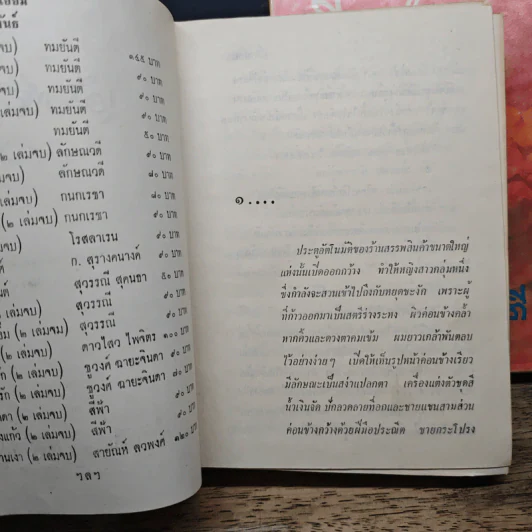 พันธ์
(จบ) ทมยันตี ๑๔๕ บาท
จบ) ทมยันตี ๙๐ บาท
ล่มจบ) ทมยันตี ๙๐ บาท
เล่มจบ) ทมยันตี ๙๐ บาท
ทมยันตี ๕๐ บาท
๒ เล่มจบ) ลักษณวดี ๙๐ บาท
ล่มจบ) ลักษณวดี ๘๐ บาท
เล่มจบ) กนกเรขา ๘๐ บาท
(๒ เล่มจบ) กนกเรขา ๙๐ บาท
โรสลาเรน ๙๐ บาท
ก. สุรางคนางค์ ๙๐ บาท
สุวรรณี สุคนธา ๕๐ บาท
สุวรรณี ๙๐ บาท
(๒ เล่มจบ) สุวรรณี ๙๐ บาท
(๒ เล่มจบ) ดาวไสว ไพจิตร ๑๐๐ บาท
(๒ เล่มจบ) ชูวงค์ ฉายะจินดา ๙๐ บาท
(๒ เล่มจบ) ชูวงค์ ฉายะจินดา ๙๐ บาท
(๒ เล่มจบ) สีฟ้า ๙๐ บาท
(๒ เล่มจบ) สีฟ้า ๙๐ บาท
(๒ เล่มจบ) สายัณห์ ลวพงค์ ๑๒๐ บาท
ฯลฯ
๑....
ประตูอัตโนมัติของร้านสรรพสินค้าขนาดใหญ่
แห่งนั้นเปิดออกกว้าง ทำให้หญิงสาวกลุ่มหนึ่ง
ซึ่งกำลังจะสวนเข้าไปถึงกับหยุดชะงัก เพราะผู้
ที่ก้าวออกมาเป็นสตรีร่างระหง ผิวค่อนข้างคล้ำ
หากคิ้วและดวงตาคมเข้ม ผมยาวเคล้าพันตลบ
ไว้อย่างง่ายๆ เปิดให้เห็นรูปหน้าค่อนข้างเรียว
มีลักษณะเป็นสง่าแปลกตา เครื่องแต่งตัวชุดสี
น้ำเงินจัด ปักลวดลายที่อกและชายแขนสามส่วน
ค่อนข้างกว้างด้วยฝีมือประณีต ชายกระโปรง